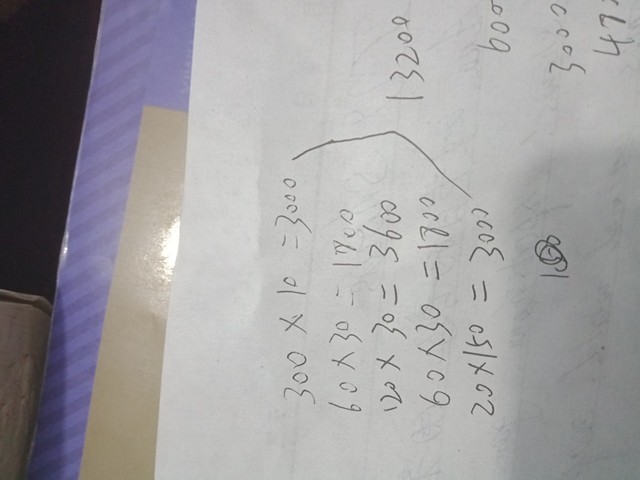 300 × 10 = 3000
60 × 30 = 1800
120 × 30 = 3600
60 × 30 = 1800
20 × 150 = 3000
13200
600
3000